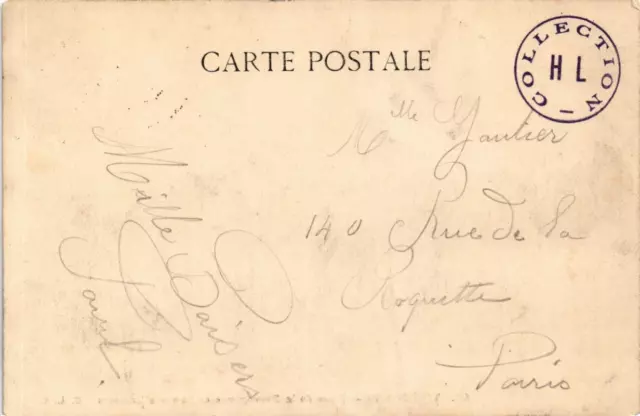 CARTE POSTALE
COLLECTION
H L
Mlle Gautier
140 Rue de la
Roquette
Paris
Mille Baisers
Paul